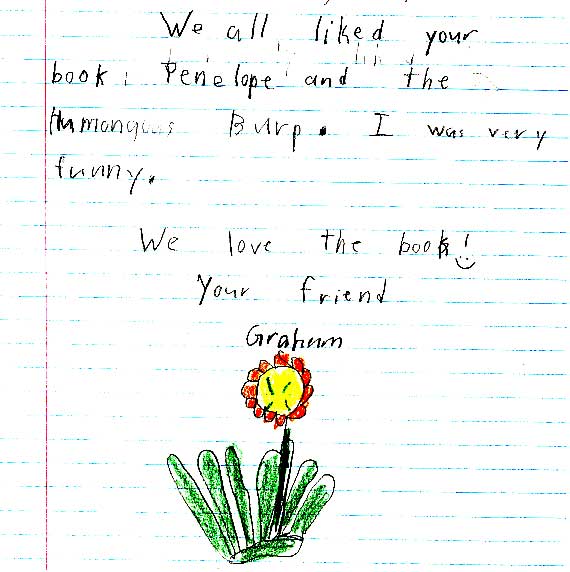 We all liked your
book: Penelope and the
Humongous Burp. I was very
funny.
We love the book!
Your friend
Graham